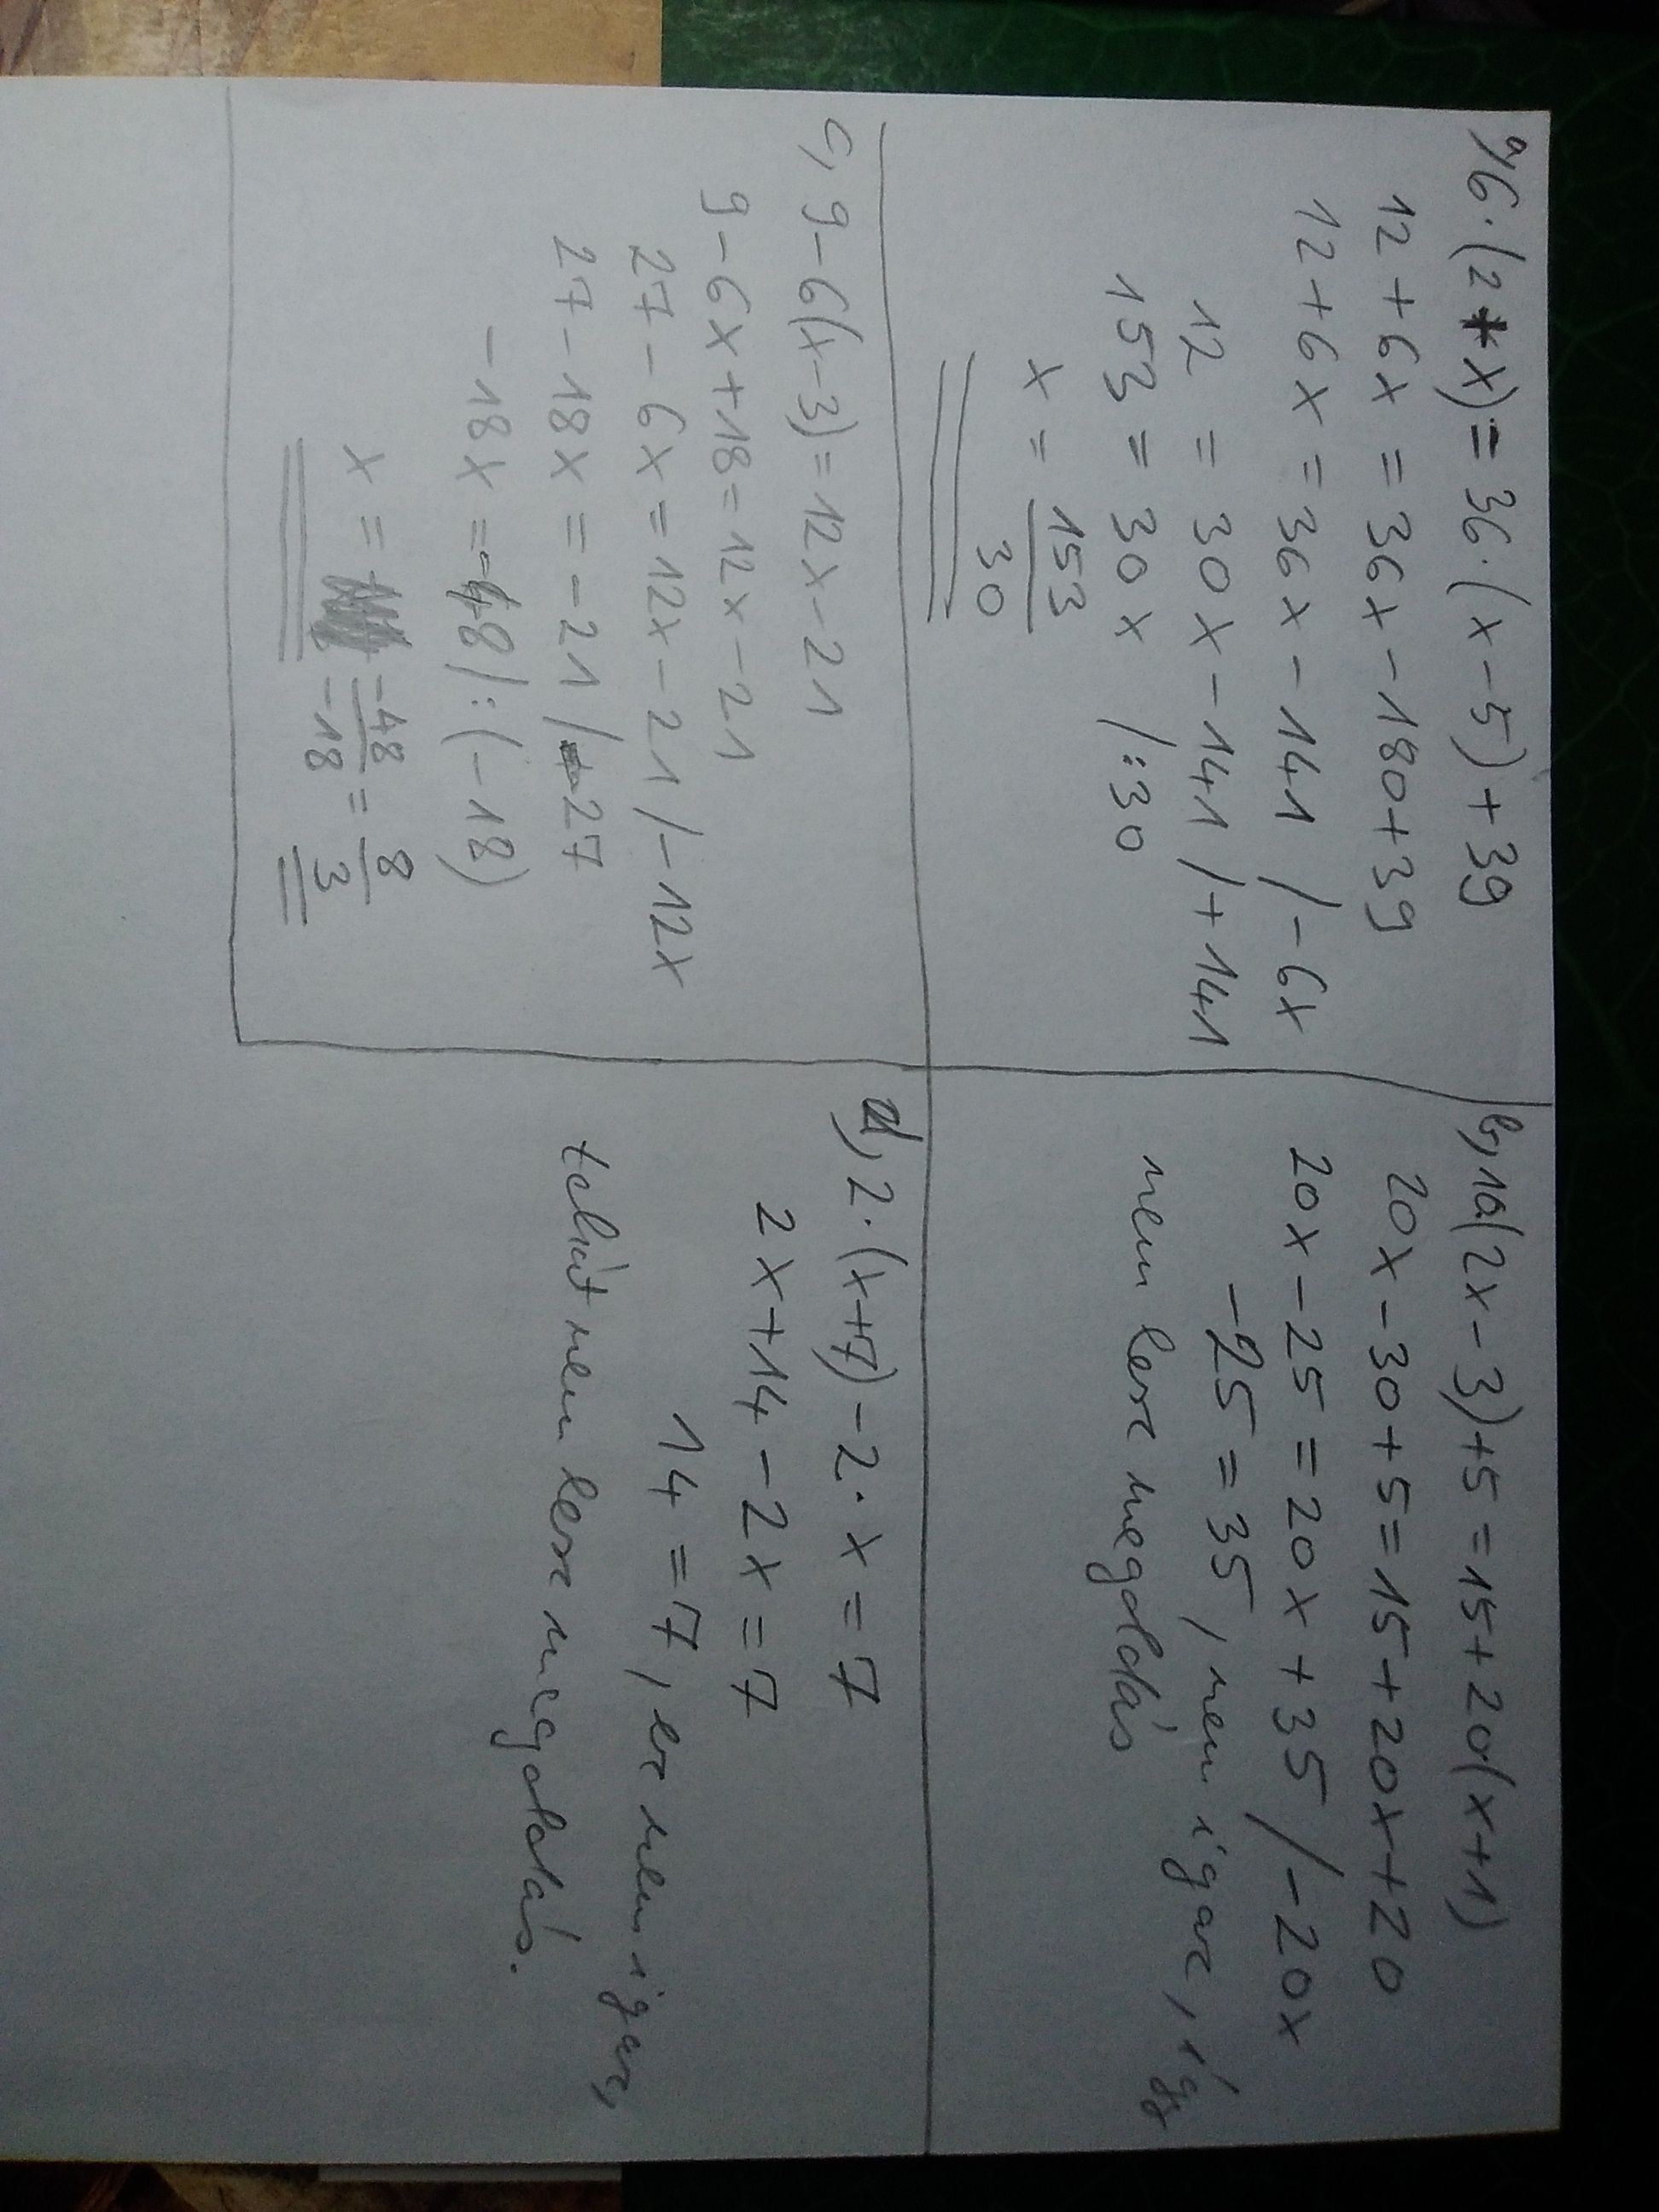 a, 6·(2+x)=36·(x-5)+39
12+6x=36x-180+39
12+6x=36x-141 /-6x
12 = 30x-141 /+141
153 = 30x /:30
x = 153/30
b, 10(2x-3)+5=15+20(x+1)
20x-30+5=15+20x+20
20x-25=20x+35 /-20x
-25=35, nem igaz, így
nem lesz megoldás
c, 9-6(x-3)=12x-21
9-6x+18=12x-21
27-6x=12x-21 /-12x
27-18x=-21 /-27
-18x=-48 /:(-18)
x = -48/-18 = 8/3
d, 2·(x+7)-2·x=7
2x+14-2x=7
14=7, ez nem igaz,
tehát nem lesz megoldás.